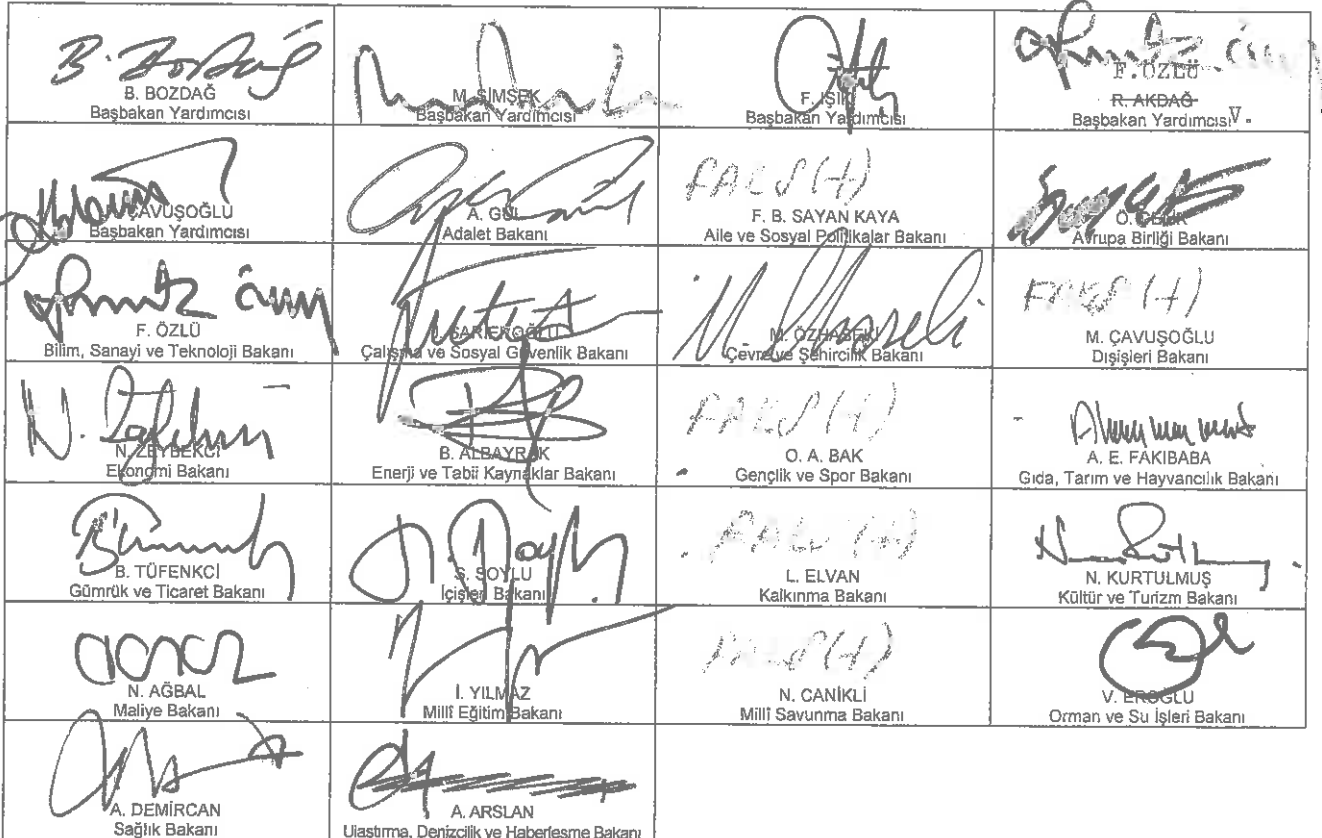 B. Bozdağ
B. BOZDAĞ
Başbakan Yardımcısı
M. ŞİMŞEK
Başbakan Yardımcısı
F. IŞIK
Başbakan Yardımcısı
F. ÖZLÜ
R. AKDAĞ
Başbakan Yardımcısı V.
ÇAVUŞOĞLU
Başbakan Yardımcısı
A. GÜL
Adalet Bakanı
F. B. SAYAN KAYA
Aile ve Sosyal Politikalar Bakanı
Ö. ÇELİK
Avrupa Birliği Bakanı
F. ÖZLÜ
Bilim, Sanayi ve Teknoloji Bakanı
J. SARIEROĞLU
Çalışma ve Sosyal Güvenlik Bakanı
M. ÖZHASEKİ
Çevre ve Şehircilik Bakanı
M. ÇAVUŞOĞLU
Dışişleri Bakanı
N. ZEYBEKCİ
Ekonomi Bakanı
B. ALBAYRAK
Enerji ve Tabii Kaynaklar Bakanı
O. A. BAK
Gençlik ve Spor Bakanı
A. E. FAKIBABA
Gıda, Tarım ve Hayvancılık Bakanı
B. TÜFENKCİ
Gümrük ve Ticaret Bakanı
S. SOYLU
İçişleri Bakanı
L. ELVAN
Kalkınma Bakanı
N. KURTULMUŞ
Kültür ve Turizm Bakanı
N. AĞBAL
Maliye Bakanı
İ. YILMAZ
Millî Eğitim Bakanı
N. CANİKLİ
Millî Savunma Bakanı
V. EROĞLU
Orman ve Su İşleri Bakanı
A. DEMİRCAN
Sağlık Bakanı
A. ARSLAN
Ulaştırma, Denizcilik ve Haberleşme Bakanı